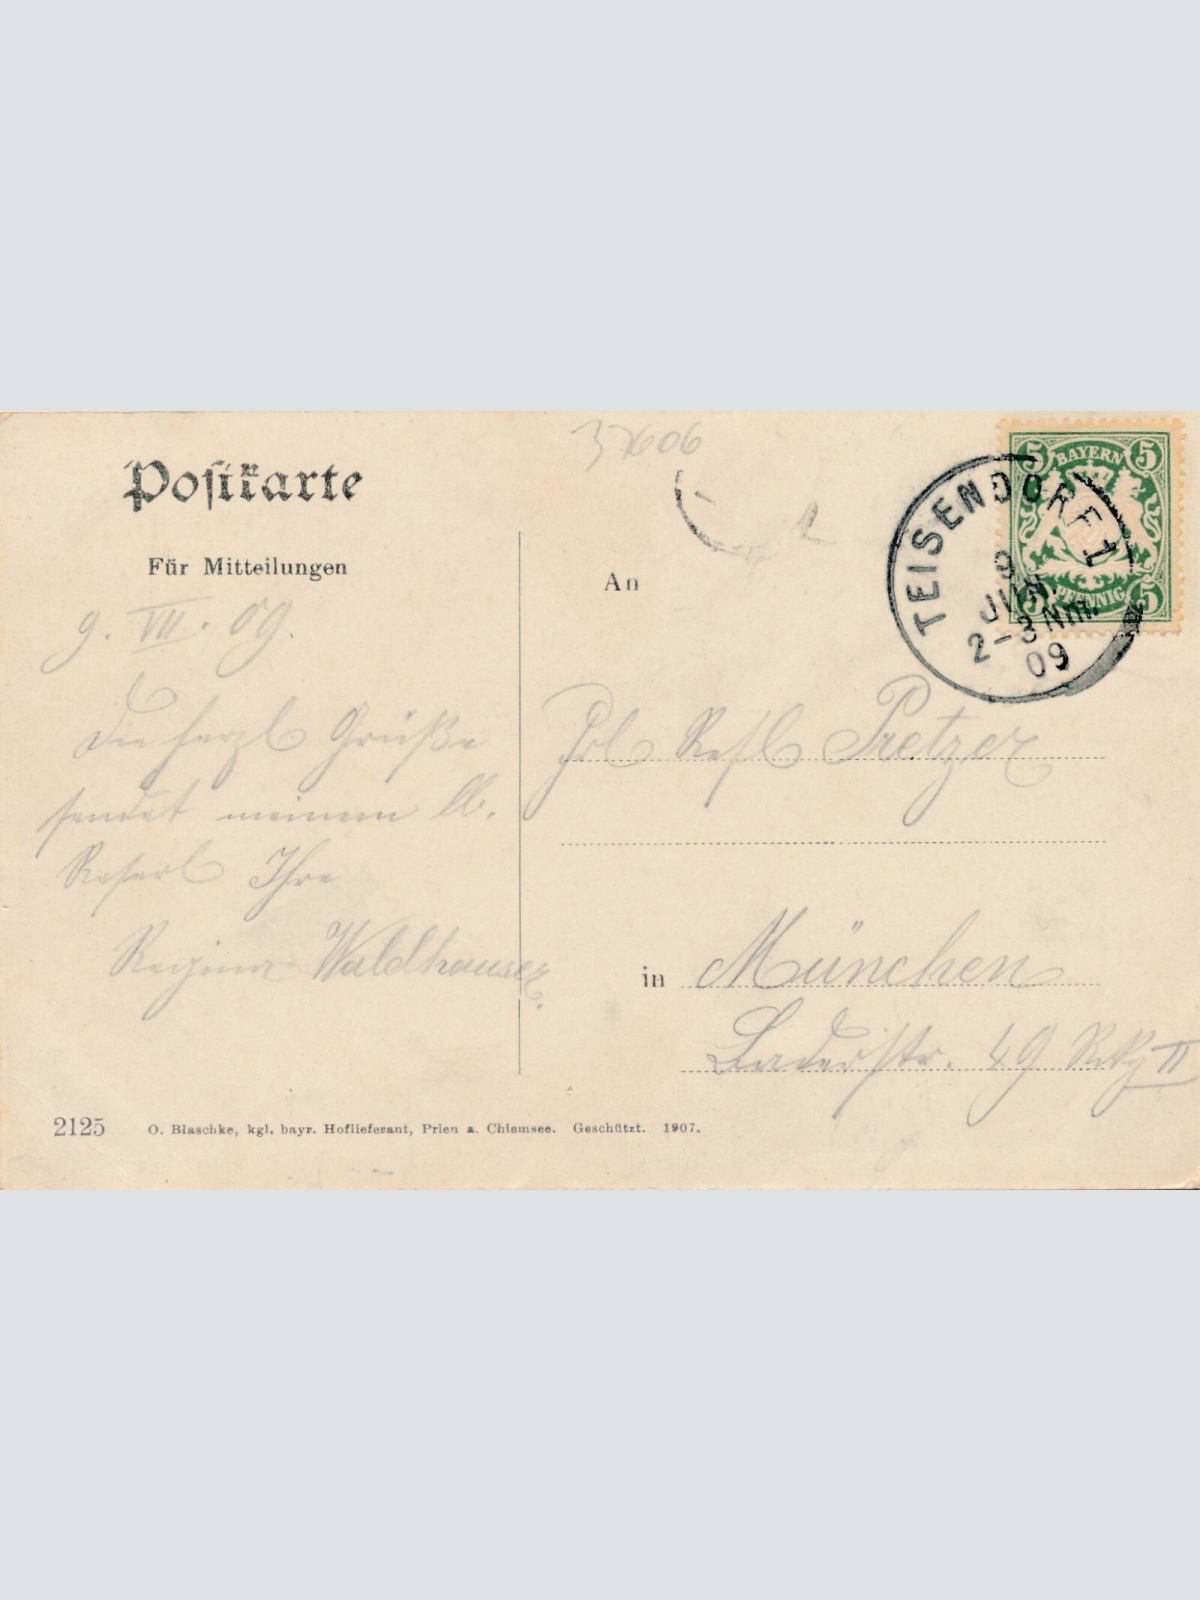 37606
Postkarte
Für Mitteilungen
9. VII. 09.
Die herzl Grüße
sendet meinem lb.
Reserl Ihre
Regina Waldhauser.
An
Frl Resl Pretzer
in München
49 II
BAYERN
5 5
PFENNIG
5 5
TEISENDORF I
9
JUN
2-3 Nm.
09
2125 O. Blaschke, kgl. bayr. Hoflieferant, Prien a. Chiemsee. Geschützt. 1907.